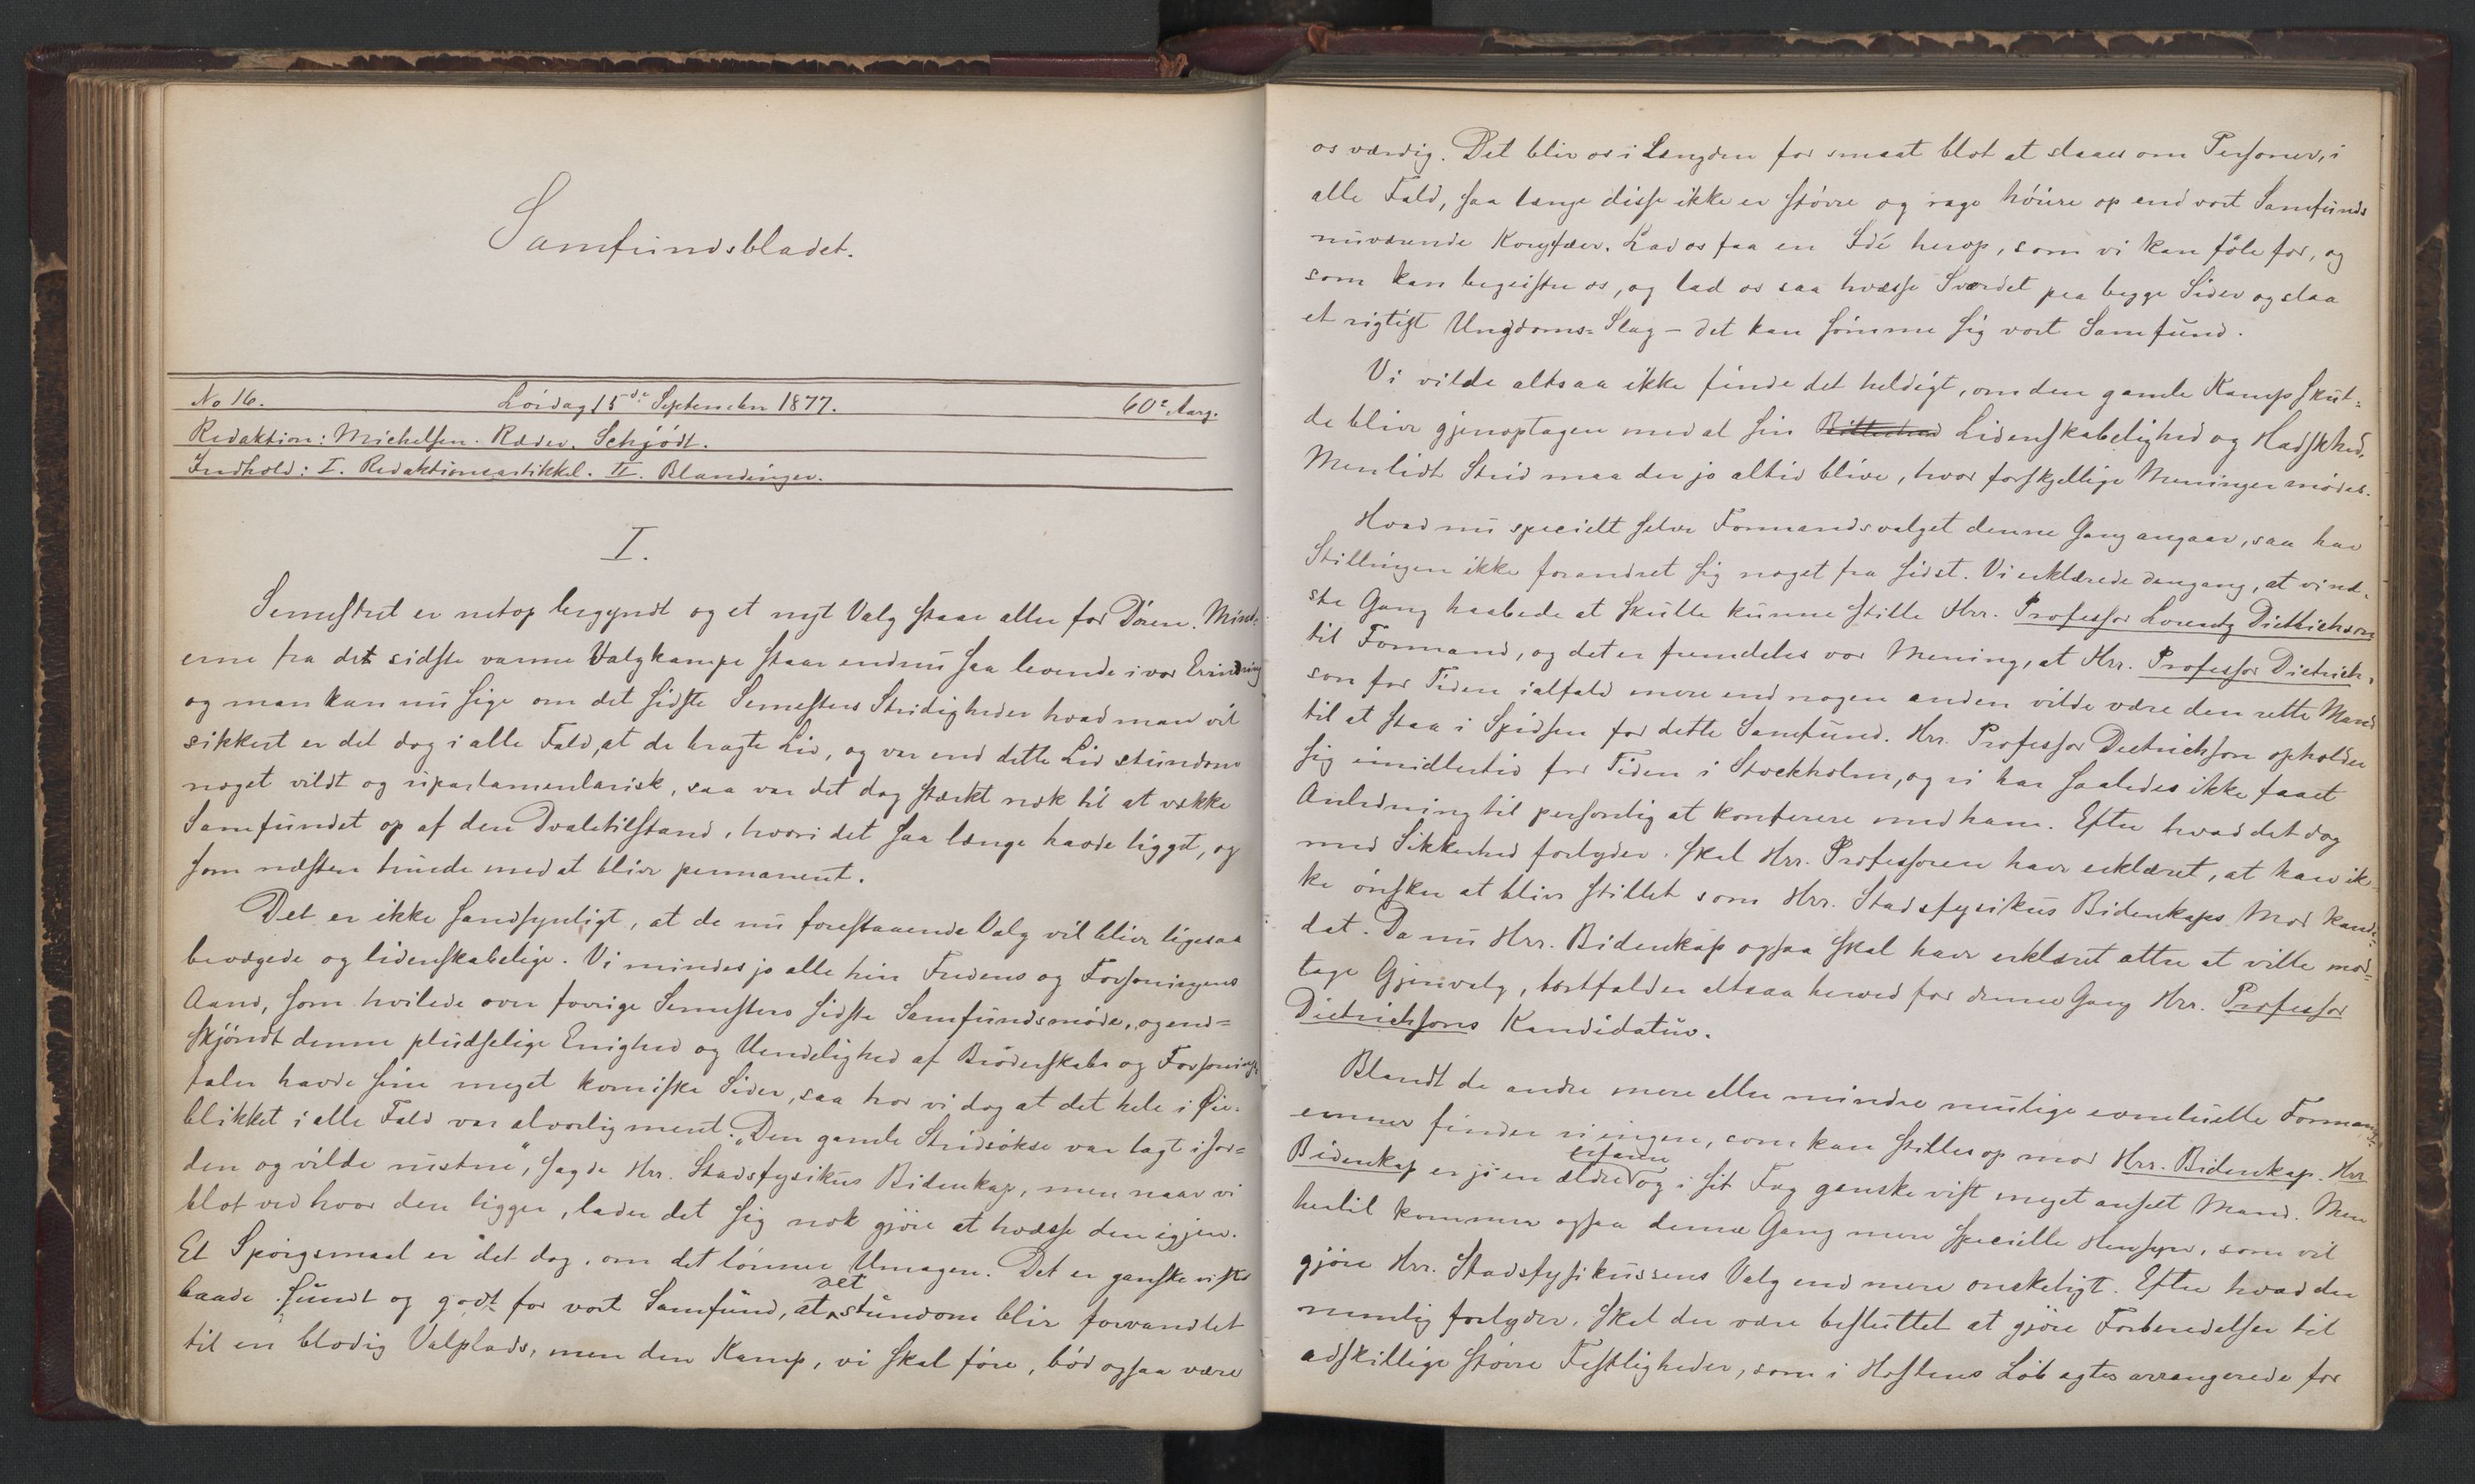 Samfundsbladet.
No 16. Löidag 15de September 1877. 60de Aarg.
Redaktion: Michelsen. Ræder. Schjödt.
Indhold: I. Redaktionsartikkel. II. Blandinger.
I.
Semestret er netop begyndt og et nyt Valg staar aller for Dören. Mind-
erne fra det sidste varme Valgkampe staar endnu saa levende i vor Erindring
og man kan nu sige om det sidste Semesters Stridigheder hvad man vil
sikkert er det dog i alle Fald, at de bragte Liv, og var end dette Liv stundom
noget vildt og uparlamentarisk, saa var det dog stærkt nok til at vække
Samfundet op af den Dvaletilstand, hvori det saa længe havde ligget, og
som næsten truede med at blive permanent.
Det er ikke sandsynligt, at de nu forestaaende Valg vil blive ligesaa
bevægede og lidenskabelige. Vi mindes jo alle hin Fredens og Forsoningens
Aand, som hvilede over forrige Semesters sidste Samfundsmöde, og end=
skjöndt denne pludselige Enighed og Uendelighed af Broderskabs og Forsonings
taler havde sine meget komiske Sider, saa tror vi dog at det hele i Öie-
blikket i alle Fald var alvorlig ment. "Den gamle Stridsökse var lagt i Jor=
den og vilde rustne", sagde Hrr. Stadsfysikus Bidenkap, men naar vi
blot ved hvor den ligger, lader det sig nok gjöre at hvæsse den igjen.
Et Spörgsmaal er det dog, om det lönner Umagen. Det er ganske vist
baade sundt og godt for vort Samfund, at det stundom blir forvandlet
til en blodig Valplads, men den Kamp, vi skal före, bör ogsaa være
os værdig. Det blir os i Længden for smaat blot at slaaes om Personer, i
alle Fald, saa længe disse ikke er större og rage höiere op end vort Samfunds
nuværende Koryfæer. Lad os faa en Idé herop, som vi kan föle for, og
som kan begeistre os, og lad os saa hvæsse Sværdet paa begge Sider og slaa
et rigtigt Ungdoms=Slag – det kan sömme sig vort Samfund.
Vi vilde altsaa ikke finde det heldigt, om den gamle Kamp skul=
de blive gjenoptagen med al sin Lidenskabelighed og Hadskhed.
Men lidt Strid maa der jo altid blive, hvor forskjellige Meninger mödes.
Hvad nu specielt selve Formandsvalget denne Gang angaar, saa har
Stillingen ikke forandret sig noget fra sidst. Vi erklærede dengang, at vi næ-
ste Gang haabede at skulle kunne stille Hrr. Professor Lorentz Dietrichson
til Formand, og det er fremdeles vor Mening, at Hrr. Professor Dietrich-
son for Tiden ialfald mere end nogen anden vilde være den rette Mand
til at staa i Spidsen for dette Samfund. Hrr. Professor Dietrichson opholder
sig imidlertid for Tiden i Stockholm, og vi har saaledes ikke faaet
Anledning til personlig at konferere med ham. Efter hvad det dog
med Sikkerhed forlyder, skal Hrr. Professoren have erklæret, at han ik-
ke önsker at blive stillet som Hrr. Stadsfysikus Bidenkaps Mod Kandi=
dat. Da nu Hrr. Bidenkap ogsaa skal have erklæret atter at ville mod=
tage Gjenvalg, bortfalder altsaa herved for denne Gang Hrr. Professor
Dietrichsons Kandidatur.
Blandt de andre mere eller mindre mulige eventuelle Formands-
emner finder vi ingen, som kan stilles op mod Hrr. Bidenkap. Hrr
Bidenkap er jo en ældre erfaren og i sit Fag ganske vist meget anseet Mand. Men
hertil kommer ogsaa denne Gang mere specielle Hensyn, som vil
gjöre Hrr. Stadsfysikussens Valg end mere önskeligt. Efter hvad der
nemlig forlyder, skal der være besluttet at gjöre Forberedelser til
adskillige större Festligheder, som i Höstens Löb agtes arrangerede for